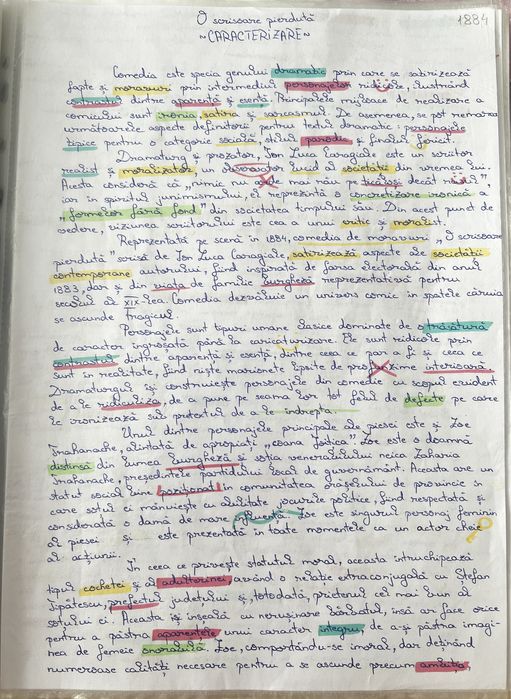 O scrisoare pierdută
1884
~CARACTERIZARE~
Comedia este specia genului dramatic prin care se satirizează
fapte și moravuri prin intermediul personajelor ridicole, ilustrând
contrastul dintre aparență și esență. Principalele mijloace de realizare a
comicului sunt ironia, satira și sarcasmul. De asemenea, se pot remarca
următoarele aspecte definitorii pentru textul dramatic: personajele
tipice pentru o categorie socială, stilul parodic și finalul fericit.
Dramaturg și prozator, Ion Luca Caragiale este un scriitor
realist și moralizator, un observator lucid al societății din vremea lui.
Acesta consideră că „nimic nu arde mai rău pe ticăloși decât râsul",
iar în spiritul junimismului, el reprezintă o concretizare ironică a
„formelor fără fond" din societatea timpului său. Din acest punct de
vedere, viziunea scriitorului este cea a unui critic și moralist.
Reprezentată pe scenă în 1884, comedia de moravuri „O scrisoare
pierdută" scrisă de Ion Luca Caragiale, satirizează aspecte ale societății
contemporane autorului, fiind inspirată de farsa electorală din anul
1883, dar și din viața de familie burgheză reprezentativă pentru
secolul al XIX-lea. Comedia dezvăluie un univers comic în spatele căruia
se ascunde tragicul.
Personajele sunt tipuri umane clasice dominate de o trăsătură
de caracter îngroșată până la caricaturizare. Ele sunt ridicole prin
contrastul dintre aparență și esență, dintre ceea ce par a fi și ceea ce
sunt în realitate, fiind niște marionete lipsite de profunzime interioară.
Dramaturgul își construiește personajele din comedie cu scopul evident
de a le ridiculiza, de a pune pe seama lor tot felul de defecte pe care
le ironizează sub pretextul de a le îndrepta.
Unul dintre personajele principale ale piesei este și Zoe
Trahanache, alintată de apropiați „coana Joițica". Zoe este o doamnă
distinsă din lumea burgheză și soția venerabilului neica Zaharia
Trahanache, președintele partidului local de guvernământ. Aceasta are un
statut social bine poziționat în comunitatea orășelului de provincie în
care soțul ei mânuiește cu abilitate jocurile politice, fiind respectată și
considerată o damă de mare influență. Zoe este singurul personaj feminin
al piesei și este prezentată în toate momentele ca un actor cheie
al acțiunii.
În ceea ce privește statutul moral, aceasta întruchipează
tipul cochetei și al adulterinei având o relație extraconjugală cu Ștefan
Tipătescu, prefectul județului și, totodată, prietenul cel mai bun al
soțului ei. Aceasta își înșeală cu nerușinare bărbatul, însă ar face orice
pentru a păstra aparențele unui caracter integru, de a-și păstra imagi-
nea de femeie onorabilă. Zoe, comportându-se imoral, dar deținând
numeroase calități necesare pentru a se ascunde precum ambiția,